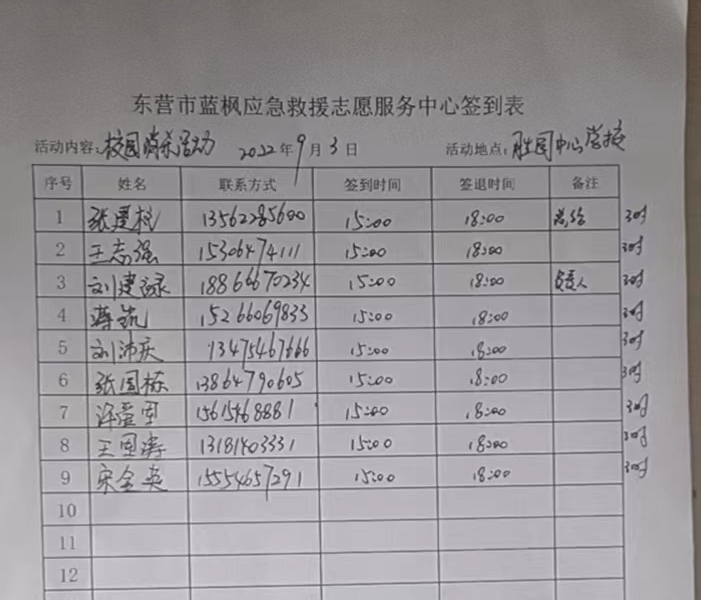 东营市蓝枫应急救援志愿服务中心签到表
活动内容:校园消杀活动 2022年9月3日 活动地点:胜园中心学校
序号 姓名 联系方式 签到时间 签退时间 备注
1 张建杭 13562285600 15:00 18:00 3时
2 王志强 15306474111 15:00 18:00 3时
3 刘建禄 18866670234 15:00 18:00 负责人 3时
4 蒋筑 15266069833 15:00 18:00 3时
5 刘沛庆 13475467666 15:00 18:00 3时
6 张国栋 13864790605 15:00 18:00 3时
7 许爱军 15615468881 15:00 18:00 3时
8 王国涛 13181403331 15:00 18:00 3时
9 宋金英 15554657291 15:00 18:00 3时
10
11
12